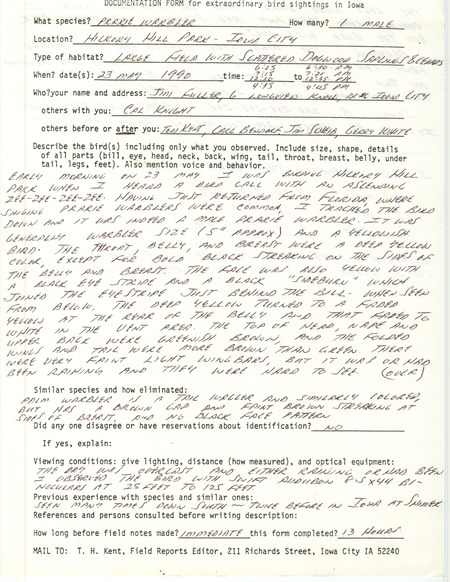 DOCUMENTATION FORM for extraordinary bird sightings in Iowa
What species? PRARIE WARBLER How many? 1 MALE
Location? HICKORY HILL PARK - IOWA CITY
Type of habitat? LARGE FIELD WITH SCATTERED DOGWOOD SAPLINGS & CEDARS
6:25 6:30 AM
When? date(s): 23 MAY 1990 time: 7:15 to 7:25 AM
4:35 4:45 PM
Who? your name and address: JIM FULLER, 6 LONGVIEW KNOLL RR#6 IOWA CITY
others with you: CAL KNIGHT
others before or after you: TOM KENT, CARL BENDORF, JIM SCHEIB, GERRY WHITE
Describe the bird(s) including only what you observed. Include size, shape, details
of all parts (bill, eye, head, neck, back, wing, tail, throat, breast, belly, under
tail, legs, feet). Also mention voice and behavior.
EARLY MORNING ON 23 MAY I WAS BIRDING HICKORY HILL
PARK WHEN I HEARD A BIRD CALL WITH AN ASCENDING
ZEE-ZEE-ZEE-ZEE. HAVING JUST RETURNED FROM FLORIDA, WHERE
SINGING PRARIE WARBLERS WERE COMMON, I TRACKED THE BIRD
DOWN AND IT WAS INDEED A MALE PRAIRIE WARBLER. IT WAS
GENERALLY WARBLER SIZE (5" APPROX) AND A YELLOWISH
BIRD. THE THROAT, BELLY, AND BREAST WERE A DEEP YELLOW
COLOR, EXCEPT FOR BOLD BLACK STREAKING ON THE SIDES OF
THE BELLY AND BREAST. THE FACE WAS ALSO YELLOW WITH
A BLACK EYE STRIPE AND A BLACK "SIDEBURN" WHICH
JOINED THE EYESTRIPE JUST BEHIND THE BILL. WHEN SEEN
FROM BELOW, THE DEEP YELLOW TURNED TO A FADED
YELLOW AT THE REAR OF THE BELLY AND THAT FADED TO
WHITE IN THE VENT AREA. THE TOP OF HEAD, NAPE AND
UPPER BACK WERE GREENISH BROWN, AND THE FOLDED
WINGS AND TAIL WERE MORE BROWN THAN GREEN. THERE
WERE VERY FAINT LIGHT WINGBARS, BUT IT WAS OR HAD
BEEN RAINING AND THEY WERE HARD TO SEE. (OVER)
Similar species and how eliminated:
PALM WARBLER IS A TAIL WAGGER AND SIMILARLY COLORED,
BUT HAS A BROWN CAP AND FAINT BROWN STREAKING AT
SIDES OF BREAST, AND NO BLACK FACE PATTERN
Did any one disagree or have reservations about identification? NO
If yes, explain:
Viewing conditions: give lighting, distance (how measured), and optical equipment:
THE DAY WAS OVERCAST AND EITHER RAINING OR HAD BEEN
I OBSERVED THE BIRD WITH SWIFT AUDUBON 8.5X44 BI-
NOCULARS AT 25 FEET TO 125 FEET
Previous experience with species and similar ones:
SEEN MANY TIMES DOWN SOUTH - TWICE BEFORE IN IOWA AT SHIMEK
References and persons consulted before writing description:
How long before field notes made? IMMEDIATE this form completed? 13 HOURS
MAIL TO: T. H. Kent, Field Reports Editor, 211 Richards Street, Iowa City IA 52240